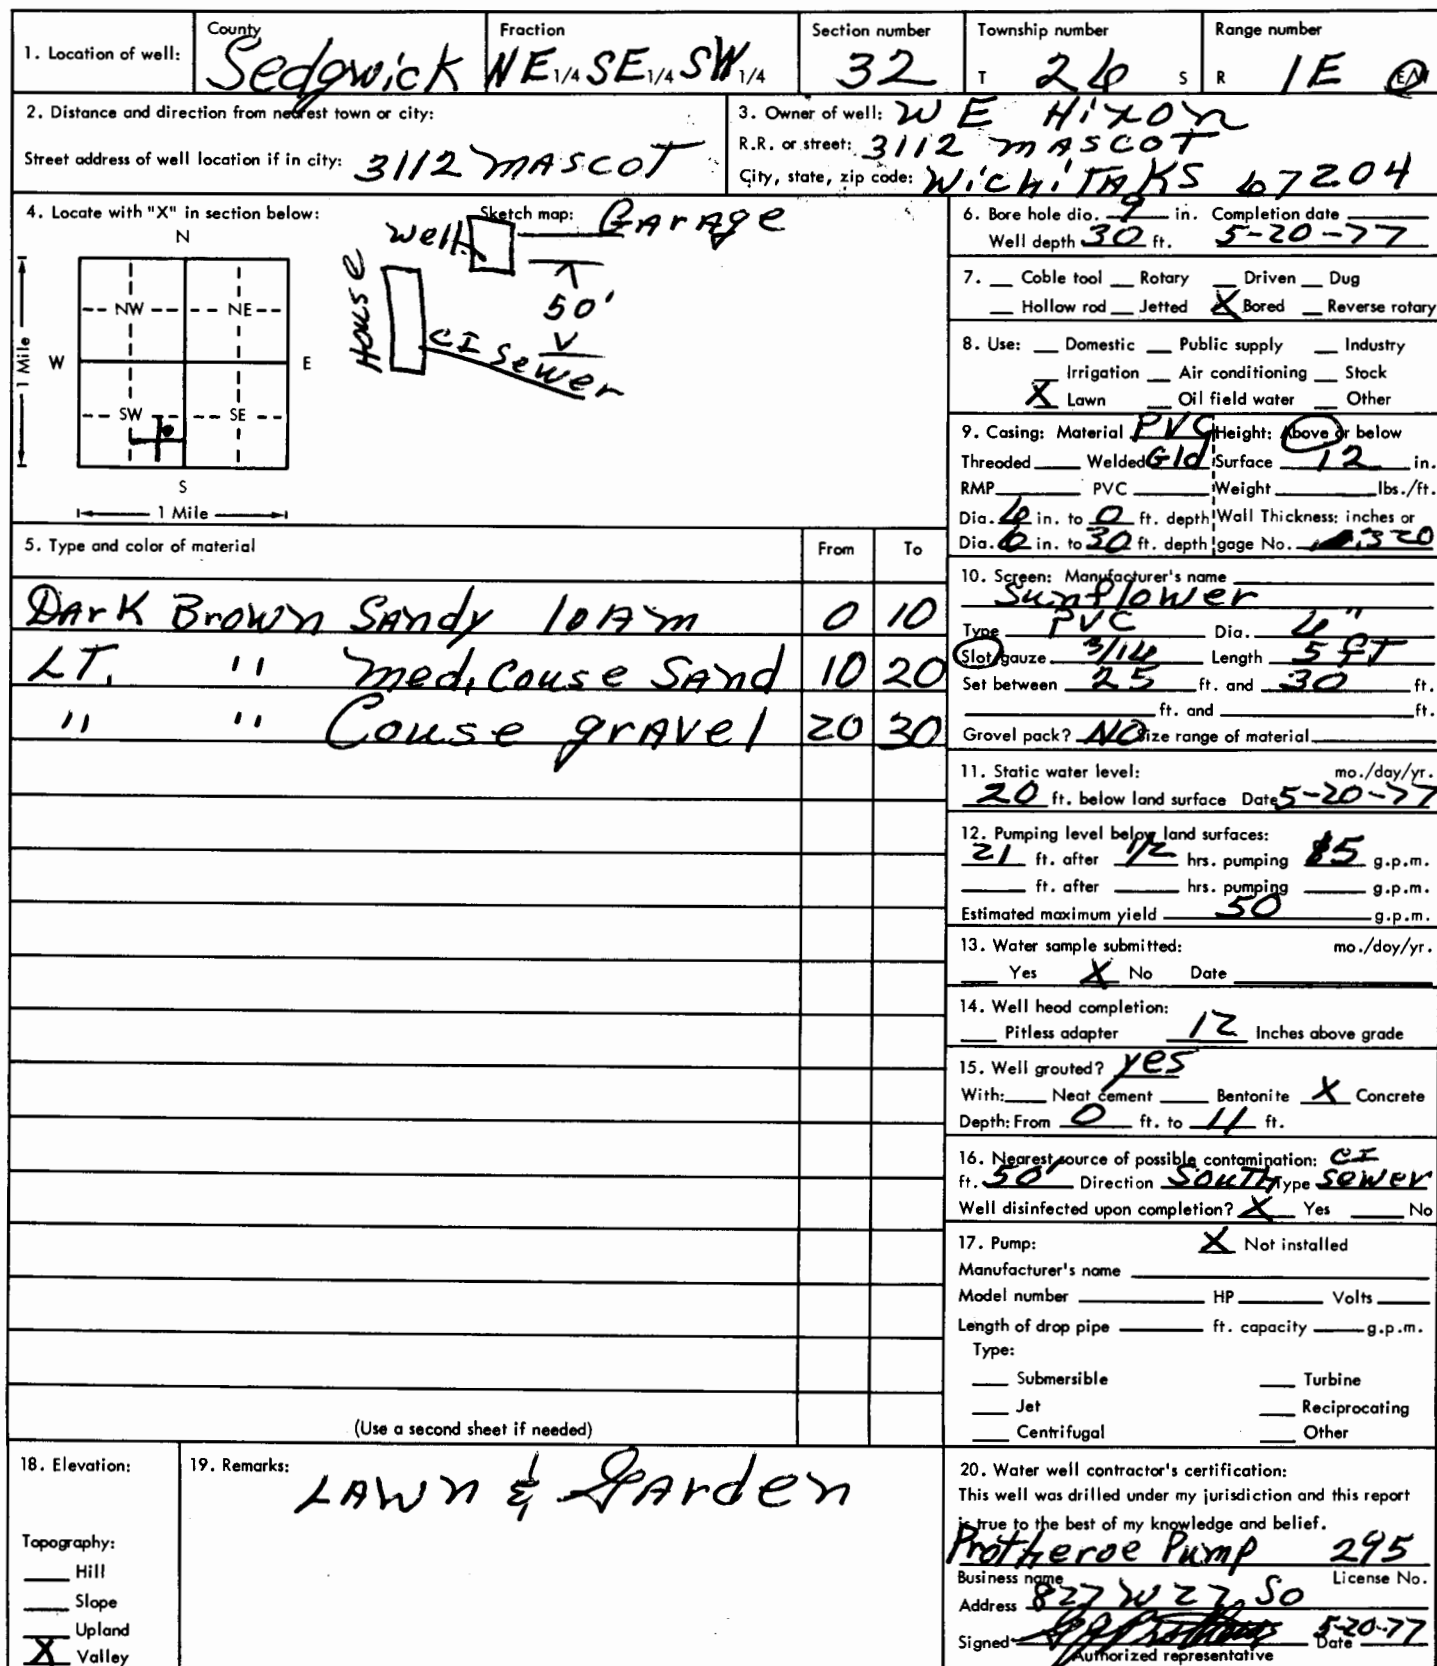 1. Location of well: County Sedgwick Fraction NE 1/4 SE 1/4 SW 1/4 Section number 32 Township number T 26 S Range number R 1E E/W
2. Distance and direction from nearest town or city:
Street address of well location if in city: 3112 MASCOT
3. Owner of well: W E Hixon
R.R. or street: 3112 MASCOT
City, state, zip code: WichiTA KS 67204
4. Locate with "X" in section below:
N
NW NE
W E
SW SE
S
1 Mile
1 Mile
Sketch map: GArAge
Well
House
50'
CI Sewer
5. Type and color of material From To
DArK Brown SAndy lOAm 0 10
LT. " med. Couse SAnd 10 20
" " Couse grAvel 20 30
(Use a second sheet if needed)
6. Bore hole dia. 9 in. Completion date
Well depth 30 ft. 5-20-77
7. Cable tool Rotary Driven Dug
Hollow rod Jetted X Bored Reverse rotary
8. Use: Domestic Public supply Industry
Irrigation Air conditioning Stock
X Lawn Oil field water Other
9. Casing: Material PVC Height: Above or below
Threaded Welded Gld Surface 12 in.
RMP PVC Weight lbs./ft.
Dia. 6 in. to 0 ft. depth Wall Thickness: inches or
Dia. 6 in. to 30 ft. depth gage No. .320
10. Screen: Manufacturer's name
Sunflower
Type PVC Dia. 6"
Slot/gauze 3/16 Length 5 fT
Set between 25 ft. and 30 ft.
ft. and ft.
Gravel pack? NO Size range of material
11. Static water level: mo./day/yr.
20 ft. below land surface Date 5-20-77
12. Pumping level below land surfaces:
21 ft. after 1/2 hrs. pumping g.p.m.
ft. after hrs. pumping g.p.m.
Estimated maximum yield 50 g.p.m.
13. Water sample submitted: mo./day/yr.
Yes X No Date
14. Well head completion:
Pitless adapter 12 Inches above grade
15. Well grouted? yes
With: Neat cement Bentonite X Concrete
Depth: From 0 ft. to 11 ft.
16. Nearest source of possible contamination: CI
ft. 50' Direction SouTh Type Sewer
Well disinfected upon completion? X Yes No
17. Pump: X Not installed
Manufacturer's name
Model number HP Volts
Length of drop pipe ft. capacity g.p.m.
Type:
Submersible Turbine
Jet Reciprocating
Centrifugal Other
18. Elevation:
Topography:
Hill
Slope
Upland
X Valley
19. Remarks: LAWn & GArden
20. Water well contractor's certification:
This well was drilled under my jurisdiction and this report
is true to the best of my knowledge and belief.
Protheroe Pump 295
Business name License No.
Address 827 W 27 So
Signed Date 5-20-77
Authorized representative